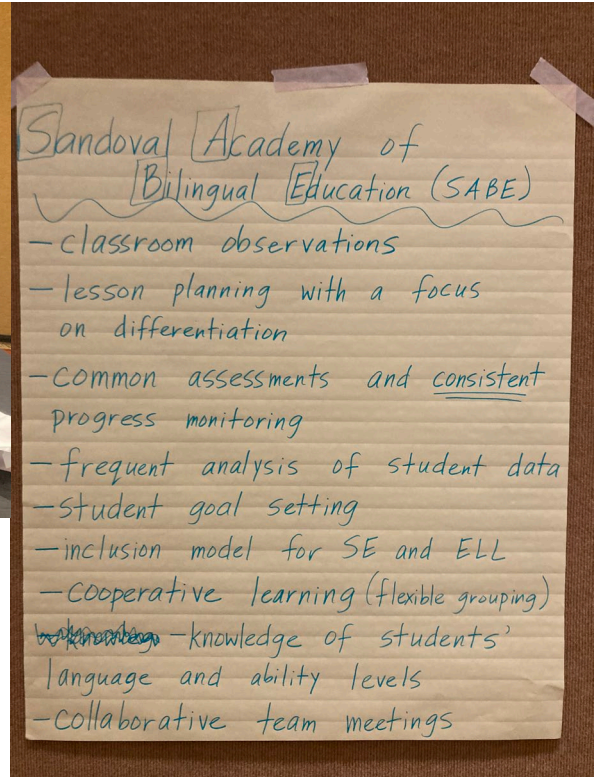 Sandoval Academy of
Bilingual Education (SABE)
- classroom observations
- lesson planning with a focus
on differentiation
- common assessments and consistent
progress monitoring
- frequent analysis of student data
- student goal setting
- inclusion model for SE and ELL
- cooperative learning (flexible grouping)
- knowledge of students'
language and ability levels
- collaborative team meetings